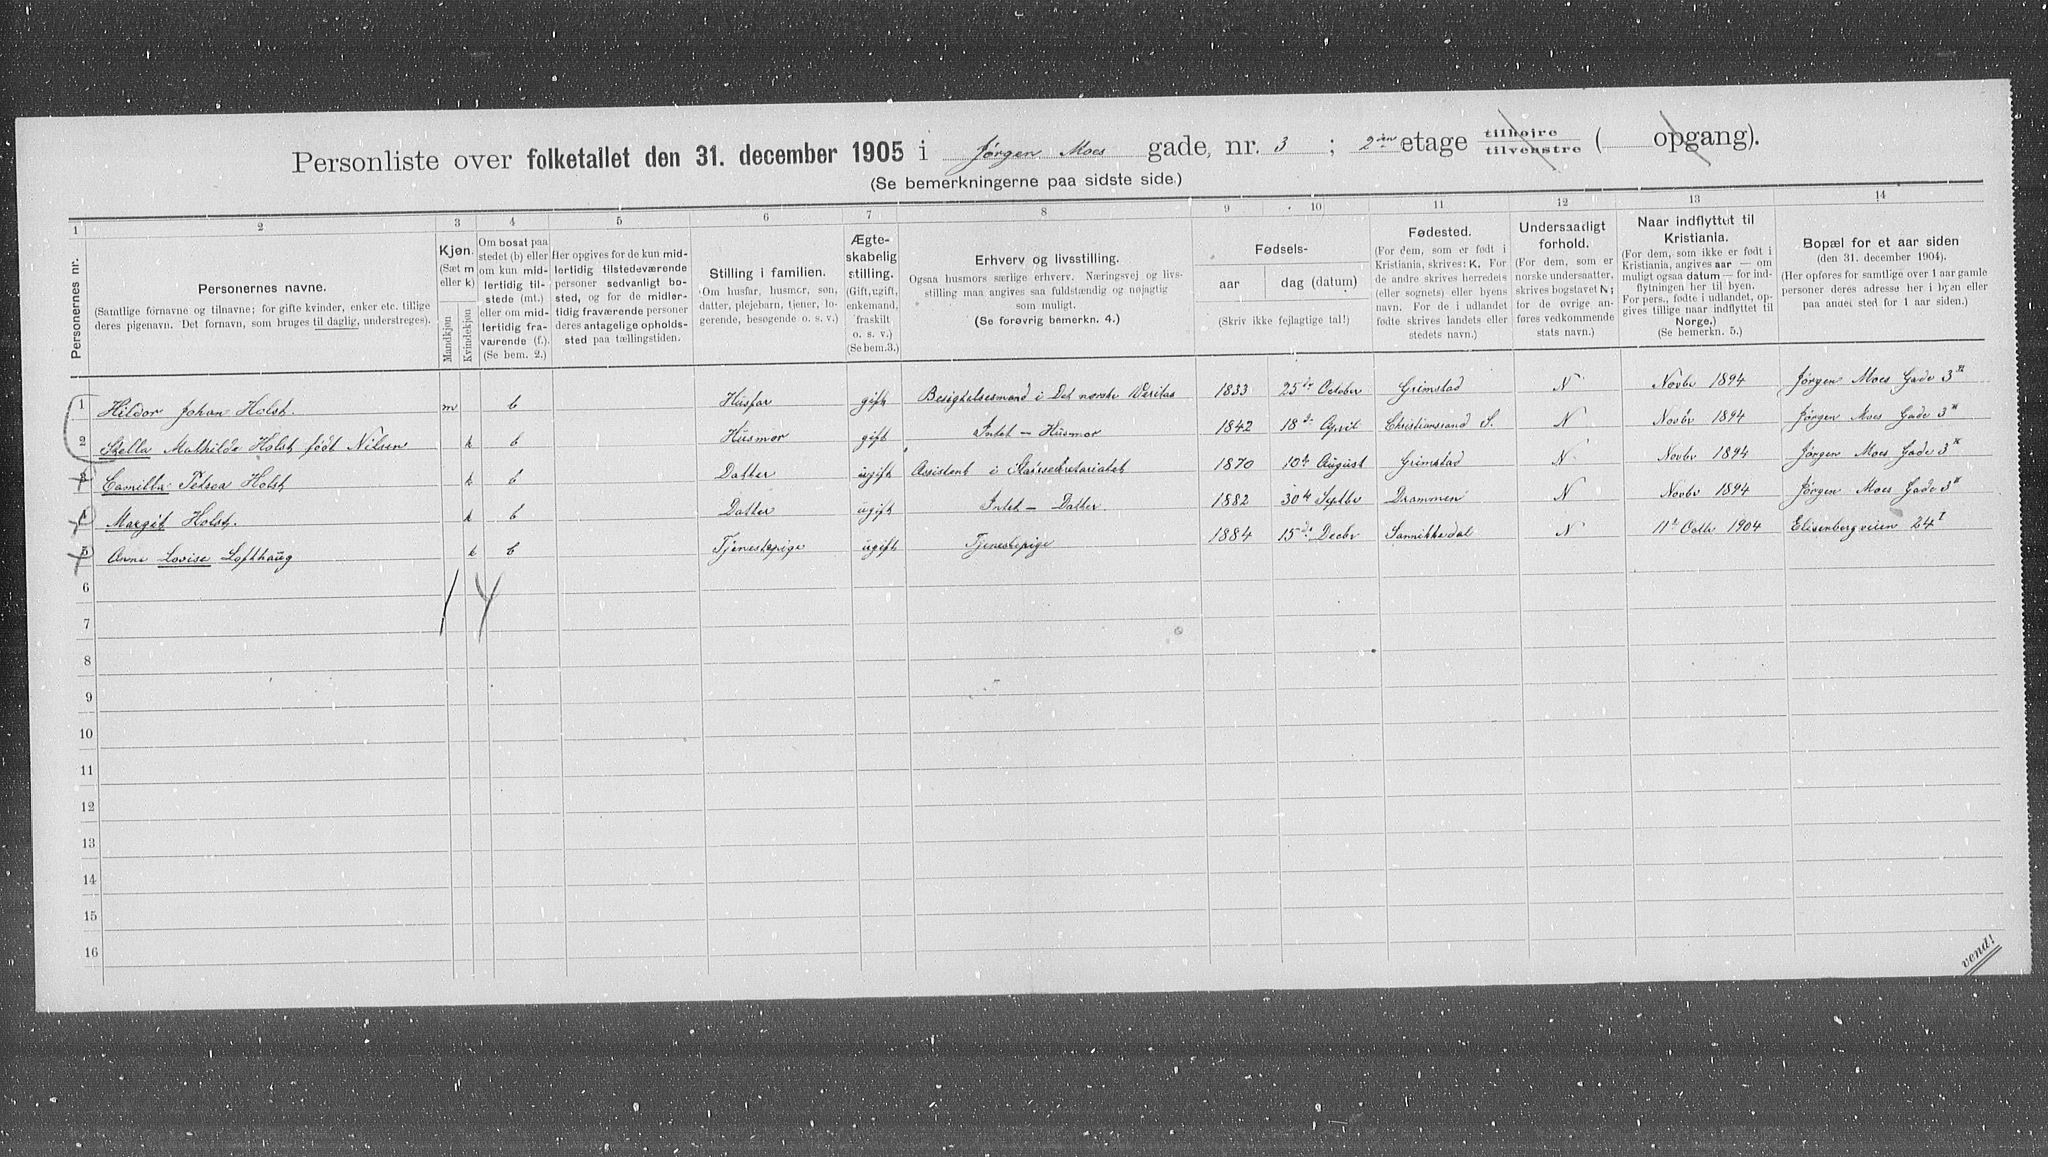 Personliste over folketallet den 31. december 1905 i Jørgen Moes gade, nr. 3 ; 2den etage tilhøjre tilvenstre ( opgang).
(Se bemerkningerne paa sidste side.)
1 2 3 4 5 6 7 8 9 10 11 12 13 14
Personernes nr.
Personernes navne.
(Samtlige fornavne og tilnavne; for gifte kvinder, enker etc. tillige deres pigenavn. Det fornavn, som bruges til daglig, understreges).
Kjøn.
(Sæt m eller k).
Mandkjøn
Kvindekjøn
Om bosat paa stedet (b) eller om kun midlertidig tilstede (mt.) eller om midlertidig fraværende (f.). (Se bem. 2.)
Her opgives for de kun midlertidig tilstedeværende personer sedvanligt bosted, og for de midlertidig fraværende personer deres antagelige opholdssted paa tællingstiden.
Stilling i familien.
(Om husfar, husmor, søn, datter, plejebarn, tjener, logerende, besøgende o. s. v.)
Ægteskabelig stilling.
(Gift, ugift, enkemand, fraskilt o. s. v.) (Se bem. 3.)
Erhverv og livsstilling.
Ogsaa husmors særlige erhverv. Næringsvej og livsstilling maa angives saa fuldstændig og nøjagtig som muligt.
(Se forøvrig bemerkn. 4.)
Fødsels-
aar
dag (datum)
(Skriv ikke fejlagtige tal!)
Fødested.
(For dem, som er født i Kristiania, skrives: K. For de andre skrives herredets (eller sognets) eller byens navn. For de i udlandet fødte skrives landets eller stedets navn.)
Undersaatligt forhold.
(For dem, som er norske undersaatter, skrives bogstavet N; for de øvrige anføres vedkommende stats navn.)
Naar indflyttet til Kristiania.
(For dem, som ikke er født i Kristiania, angives aar — om muligt ogsaa datum — for indflytningen her til byen. For pers., fødte i udlandet, opgives tillige naar indflyttet til Norge.)
(Se bemerkn. 5.)
Bopæl for et aar siden
(den 31. december 1904).
(Her opføres for samtlige over 1 aar gamle personer deres adresse her i byen eller paa andet sted for 1 aar siden.)
1 Hildor Johan Holst. m b Husfar gift Besigtelsesmand i Det norske Veritas 1833 25de October Grimstad N Novbr 1894 Jørgen Moes Gade 3 II
2 Stella Mathilde Holst født Nilsen k b Husmor gift Intet – Husmor 1842 18de April Christianssand S. N Novbr 1894 Jørgen Moes Gade 3 II
3 Camilla Petrea Holst k b Datter ugift Assistent i 1870 10de August Grimstad N Novbr 1894 Jørgen Moes Gade 3 II
4 Margit Holst. k b Datter ugift Intet – Datter. 1882 30te Septbr Drammen N Novbr 1894 Jørgen Moes Gade 3 II
5 Anne Lovise Lofthaug k b Tjenestepige ugift Tjenestepige 1884 15de Decbr Sannikedal N 11te Octbr 1904 Elisenbergveien 24 I
6
1 4
7
8
9
10
11
12
13
14
15
16
vend!